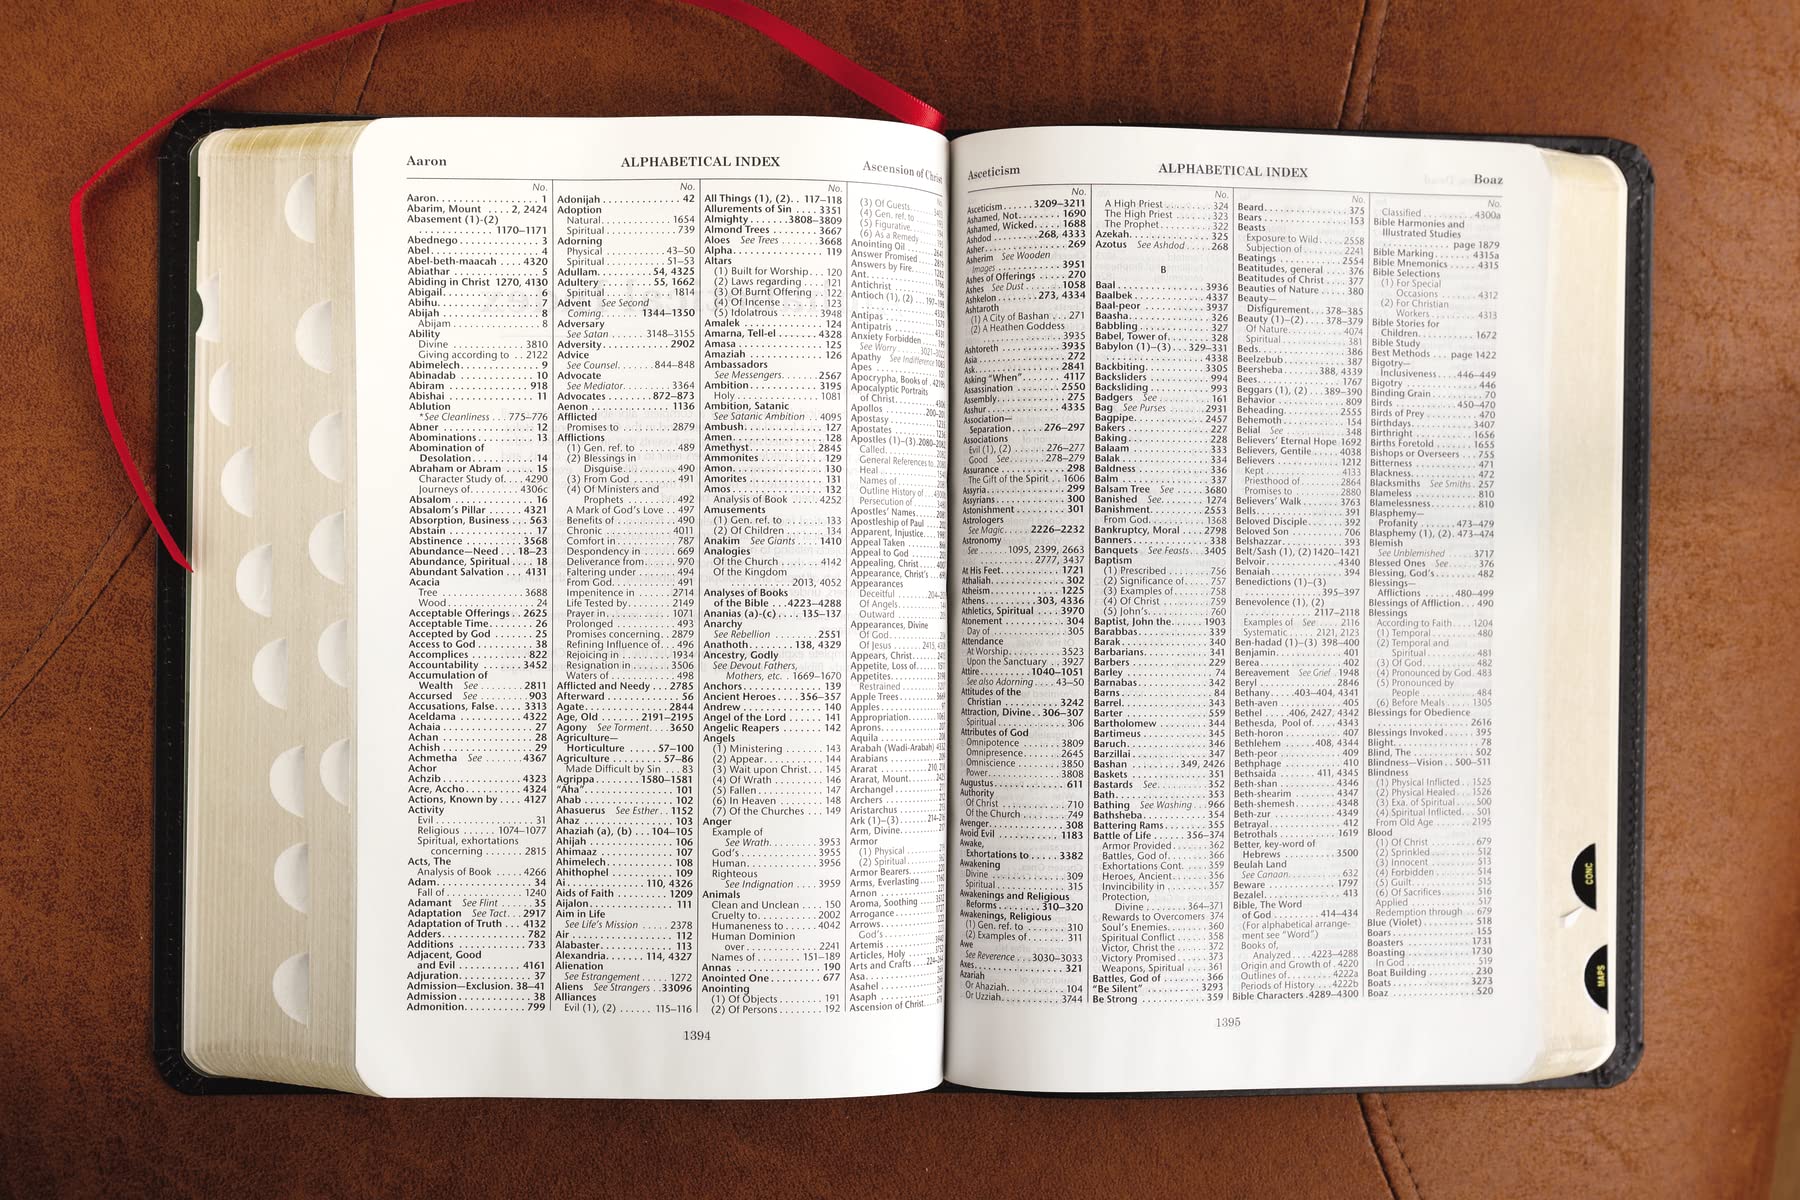 Aaron
ALPHABETICAL INDEX
Ascension of Christ
No.
Aaron 1
Abarim, Mount 2, 2424
Abasement (1)-(2)
1170–1171
Abednego 3
Abel 4
Abel-beth-maacah 4320
Abiathar 5
Abiding in Christ 1270, 4130
Abigail 6
Abihu 7
Abijah 8
Abijam 8
Ability
Divine 3810
Giving according to 2122
Abimelech 9
Abinadab 10
Abiram 918
Abishai 11
Ablution
*See Cleanliness 775–776
Abner 12
Abominations 13
Abomination of
Desolation 14
Abraham or Abram 15
Character Study of 4290
Journeys of 4306c
Absalom 16
Absalom's Pillar 4321
Absorption, Business 563
Abstain 17
Abstinence 3568
Abundance—Need 18–23
Abundance, Spiritual 18
Abundant Salvation 4131
Acacia
Tree 3688
Wood 24
Acceptable Offerings 2625
Acceptable Time 26
Accepted by God 25
Access to God 38
Accomplices 822
Accountability 3452
Accumulation of
Wealth See 2811
Accursed See 903
Accusations, False 3313
Aceldama 4322
Achaia 27
Achan 28
Achish 29
Achmetha See 4367
Achor
Achzib 4323
Acre, Accho 4324
Actions, Known by 4127
Activity
Evil 31
Religious 1074–1077
Spiritual, exhortations
concerning 2815
Acts, The
Analysis of Book 4266
Adam 34
Fall of 1240
Adamant See Flint 35
Adaptation See Tact 2917
Adaptation of Truth 4132
Adders 782
Additions 733
Adjacent, Good
and Evil 4161
Adjuration 37
Admission—Exclusion 38–41
Admission 38
Admonition 799
No.
Adonijah 42
Adoption
Natural 1654
Spiritual 739
Adorning
Physical 43–50
Spiritual 51–53
Adullam 54, 4325
Adultery 55, 1662
Spiritual 1814
Advent See Second
Coming 1344–1350
Adversary
See Satan 3148–3155
Adversity 2902
Advice
See Counsel 844–848
Advocate
See Mediator 3364
Advocates 872–873
Aenon 1136
Afflicted
Promises to 2879
Afflictions
(1) Gen. ref. to 489
(2) Blessings in
Disguise 490
(3) From God 491
(4) Of Ministers and
Prophets 492
A Mark of God's Love 497
Benefits of 490
Chronic 4011
Comfort in 787
Despondency in 669
Deliverance from 970
Faltering under 494
From God 491
Impenitence in 2714
Life Tested by 2149
Prayer in 1071
Prolonged 493
Promises concerning 2879
Refining Influence of 496
Rejoicing in 1934
Resignation in 3506
Waters of 498
Afflicted and Needy 2785
Afterward 56
Agate 2844
Age, Old 2191–2195
Agony See Torment 3650
Agriculture—
Horticulture 57–100
Agriculture 57–86
Made Difficult by Sin 83
Agrippa 1580–1581
"Aha" 101
Ahab 102
Ahasuerus See Esther 1152
Ahaz 103
Ahaziah (a), (b) 104–105
Ahijah 106
Ahimaaz 107
Ahimelech 108
Ahithophel 109
Ai 110, 4326
Aids of Faith 1209
Aijalon 111
Aim in Life
See Life's Mission 2378
Air 112
Alabaster 113
Alexandria 114, 4327
Alienation
See Estrangement 1272
Aliens See Strangers 33096
Alliances
Evil (1), (2) 115–116
No.
All Things (1), (2) 117–118
Allurements of Sin 3351
Almighty 3808–3809
Almond Trees 3667
Aloes See Trees 3668
Alpha 119
Altars
(1) Built for Worship 120
(2) Laws regarding 121
(3) Of Burnt Offering 122
(4) Of Incense 123
(5) Idolatrous 3948
Amalek 124
Amarna, Tell-el 4328
Amasa 125
Amaziah 126
Ambassadors
See Messengers 2567
Ambition 3195
Holy 1081
Ambition, Satanic
See Satanic Ambition 4095
Ambush 127
Amen 128
Amethyst 2845
Ammonites 129
Amon 130
Amorites 131
Amos 132
Analysis of Book 4252
Amusements
(1) Gen. ref. to 133
(2) Of Children 134
Anakim See Giants 1410
Analogies
Of the Church 4142
Of the Kingdom
2013, 4052
Analyses of Books
of the Bible 4223–4288
Ananias (a)-(c) 135–137
Anarchy
See Rebellion 2551
Anathoth 138, 4329
Ancestry, Godly
See Devout Fathers,
Mothers, etc. 1669–1670
Anchors 139
Ancient Heroes 356–357
Andrew 140
Angel of the Lord 141
Angelic Reapers 142
Angels
(1) Ministering 143
(2) Appear 144
(3) Wait upon Christ 145
(4) Of Wrath 146
(5) Fallen 147
(6) In Heaven 148
(7) Of the Churches 149
Anger
Example of
See Wrath 3953
God's 3955
Human 3956
Righteous
See Indignation 3959
Animals
Clean and Unclean 150
Cruelty to 2002
Humaneness to 4042
Human Dominion
over 2241
Names of 151–189
Annas 190
Anointed One 677
Anointing
(1) Of Objects 191
(2) Of Persons 192
(3) Of Guests
(4) Gen. ref. to
(5) Figurative
(6) As a Remedy
Anointing Oil
Answer Promised
Answers by Fire
Ant
Antichrist
Antioch (1), (2)
Antipas
Antipatris
Anxiety Forbidden
See Worry
Apathy See Indifference
Apes
Apocrypha, Books of
Apocalyptic Portraits
of Christ
Apollos
Apostasy
Apostates
Apostles (1)-(3)
Called
General References to
Heal
Names of
Outline History of
Persecution of
Apostles' Names
Apostleship of Paul
Apparent, Injustice
Appeal Taken
Appeal to God
Appealing, Christ
Appearance, Christ's
Appearances
Deceitful
Of Angels
Outward
Appearances, Divine
Of God
Of Jesus
Appears, Christ
Appetite, Loss of
Appetites
Restrained
Apple Trees
Apples
Appropriation
Aprons
Aquila
Arabah (Wadi-Arabah)
Arabians
Ararat
Ararat, Mount
Archangel
Archers
Aristarchus
Ark (1)-(3)
Arm, Divine
Armor
(1) Physical
(2) Spiritual
Armor Bearers
Arms, Everlasting
Arnon
Aroma, Soothing
Arrogance
Arrows
God's
Artemis
Articles, Holy
Arts and Crafts
Asa
Asahel
Asaph
Ascension of Christ
1394
Asceticism
ALPHABETICAL INDEX
Boaz
No.
Asceticism 3209–3211
Ashamed, Not 1690
Ashamed, Wicked 1688
Ashdod 268, 4333
Asher 269
Asherim See Wooden
Images 3951
Ashes of Offerings 270
Ashes See Dust 1058
Ashkelon 273, 4334
Ashtaroth
(1) A City of Bashan 271
(2) A Heathen Goddess
3935
Ashtoreth 3935
Asia 272
Ask 2841
Asking "When" 4117
Assassination 2550
Assembly 275
Asshur 4335
Association—
Separation 276–297
Associations
Evil (1), (2) 276–277
Good See 278–279
Assurance 298
The Gift of the Spirit 1606
Assyria 299
Assyrians 300
Astonishment 301
Astrologers
See Magic 2226–2232
Astronomy
See 1095, 2399, 2663
2777, 3437
At His Feet 1721
Athaliah 302
Atheism 1225
Athens 303, 4336
Athletics, Spiritual 3970
Atonement 304
Day of 305
Attendance
At Worship 3523
Upon the Sanctuary 3927
Attire 1040–1051
See also Adorning 43–50
Attitudes of the
Christian 3242
Attraction, Divine 306–307
Spiritual 306
Attributes of God
Omnipotence 3809
Omnipresence 2645
Omniscience 3850
Power 3808
Augustus 611
Authority
Of Christ 710
Of the Church 749
Avenger 308
Avoid Evil 1183
Awake,
Exhortations to 3382
Awakening
Divine 309
Spiritual 315
Awakenings and Religious
Reforms 310–320
Awakenings, Religious
(1) Gen. ref. to 310
(2) Examples of 311
Awe
See Reverence 3030–3033
Axes 321
Azariah
Or Ahaziah 104
Or Uzziah 3744
No.
A High Priest 324
The High Priest 323
The Prophet 322
Azekah 325
Azotus See Ashdod 268
B
Baal 3936
Baalbek 4337
Baal-peor 3937
Baasha 326
Babbling 327
Babel, Tower of 328
Babylon (1)-(3) 329–331
4338
Backbiting 3305
Backsliders 994
Backsliding 993
Badgers See 161
Bag See Purses 2931
Bagpipe 2457
Bakers 227
Baking 228
Balaam 333
Balak 334
Baldness 336
Balm 337
Balsam Tree See 3680
Banished See 1274
Banishment 2553
From God 1368
Bankruptcy, Moral 2798
Banners 338
Banquets See Feasts 3405
Baptism
(1) Prescribed 756
(2) Significance of 757
(3) Examples of 758
(4) Of Christ 759
(5) John's 760
Baptist, John the 1903
Barabbas 339
Barak 340
Barbarians 341
Barbers 229
Barley 74
Barnabas 342
Barns 84
Barrel 343
Barter 559
Bartholomew 344
Bartimeus 345
Baruch 346
Barzillai 347
Bashan 349, 2426
Baskets 351
Bastards See 352
Bath 353
Bathing See Washing 966
Bathsheba 354
Battering Rams 355
Battle of Life 356–374
Armor Provided 362
Battles, God of 366
Exhortations Cont. 359
Heroes, Ancient 356
Invincibility in 357
Protection,
Divine 364–371
Rewards to Overcomers 374
Soul's Enemies 360
Spiritual Conflict 358
Victor, Christ the 372
Victory Promised 373
Weapons, Spiritual 361
Battles, God of 366
"Be Silent" 3293
Be Strong 359
No.
Beard 375
Bears 153
Beasts
Exposure to Wild 2558
Subjection of 2241
Beatings 2554
Beatitudes, general 376
Beatitudes of Christ 377
Beauties of Nature 380
Beauty—
Disfigurement 378–385
Beauty (1)-(2) 378–379
Of Nature 4074
Spiritual 381
Beds 386
Beelzebub 387
Beersheba 388, 4339
Bees 1767
Beggars (1), (2) 389–390
Behavior 809
Beheading 2555
Behemoth 154
Belial See 348
Believers' Eternal Hope 1692
Believers, Gentile 4038
Believers 1212
Kept 4133
Priesthood of 2864
Promises to 2880
Believers' Walk 3763
Bells 391
Beloved Disciple 392
Beloved Son 706
Belshazzar 393
Belt/Sash (1), (2) 1420–1421
Belvoir 4340
Benaiah 394
Benedictions (1)-(3)
395–397
Benevolence (1), (2)
2117–2118
Examples of See 2116
Systematic 2121, 2123
Ben-hadad (1)-(3) 398–400
Benjamin 401
Berea 402
Bereavement See Grief 1948
Beryl 2846
Bethany 403–404, 4341
Beth-aven 405
Bethel 406, 2427, 4342
Bethesda, Pool of 4343
Beth-horon 407
Bethlehem 408, 4344
Beth-peor 409
Bethphage 410
Bethsaida 411, 4345
Beth-shan 4346
Beth-shearim 4347
Beth-shemesh 4348
Beth-zur 4349
Betrayal 412
Betrothals 1619
Better, key-word of
Hebrews 3500
Beulah Land
See Canaan 632
Beware 1797
Bezalel 413
Bible, The Word
of God 414–434
(For alphabetical arrange-
ment see "Word")
Books of,
Analyzed 4223–4288
Origin and Growth of 4220
Outlines of 4222a
Periods of History 4222b
Bible Characters 4289–4300
No.
Classified 4300a
Bible Harmonies and
Illustrated Studies
page 1879
Bible Marking 4315a
Bible Mnemonics 4315
Bible Selections
(1) For Special
Occasions 4312
(2) For Christian
Workers 4313
Bible Stories for
Children 1672
Bible Study
Best Methods page 1422
Bigotry—
Inclusiveness 446–449
Bigotry 446
Binding Grain 70
Birds 450–470
Birds of Prey 470
Birthdays 3407
Birthright 1656
Births Foretold 1655
Bishops or Overseers 755
Bitterness 471
Blackness 472
Blacksmiths See Smiths 257
Blameless 810
Blamelessness 810
Blasphemy—
Profanity 473–479
Blasphemy (1), (2) 473–474
Blemish
See Unblemished 3717
Blessed Ones See 376
Blessing, God's 482
Blessings—
Afflictions 480–499
Blessings of Affliction 490
Blessings
According to Faith 1204
(1) Temporal 480
(2) Temporal and
Spiritual 481
(3) Of God 482
(4) Pronounced by God 483
(5) Pronounced by
People 484
(6) Before Meals 1305
Blessings for Obedience
2616
Blessings Invoked 395
Blight 78
Blind, The 502
Blindness—Vision 500–511
Blindness
(1) Physical Inflicted 1525
(2) Physical Healed 1526
(3) Exa. of Spiritual 500
(4) Spiritual Inflicted 501
From Old Age 2195
Blood
(1) Of Christ 679
(2) Sprinkled 512
(3) Innocent 513
(4) Forbidden 514
(5) Guilt 515
(6) Of Sacrifices 516
Applied 517
Redemption through 679
Blue (Violet) 518
Boars 155
Boasters 1731
Boasting 1730
In God 519
Boat Building 230
Boats 3273
Boaz 520
1395
CONC
MAPS